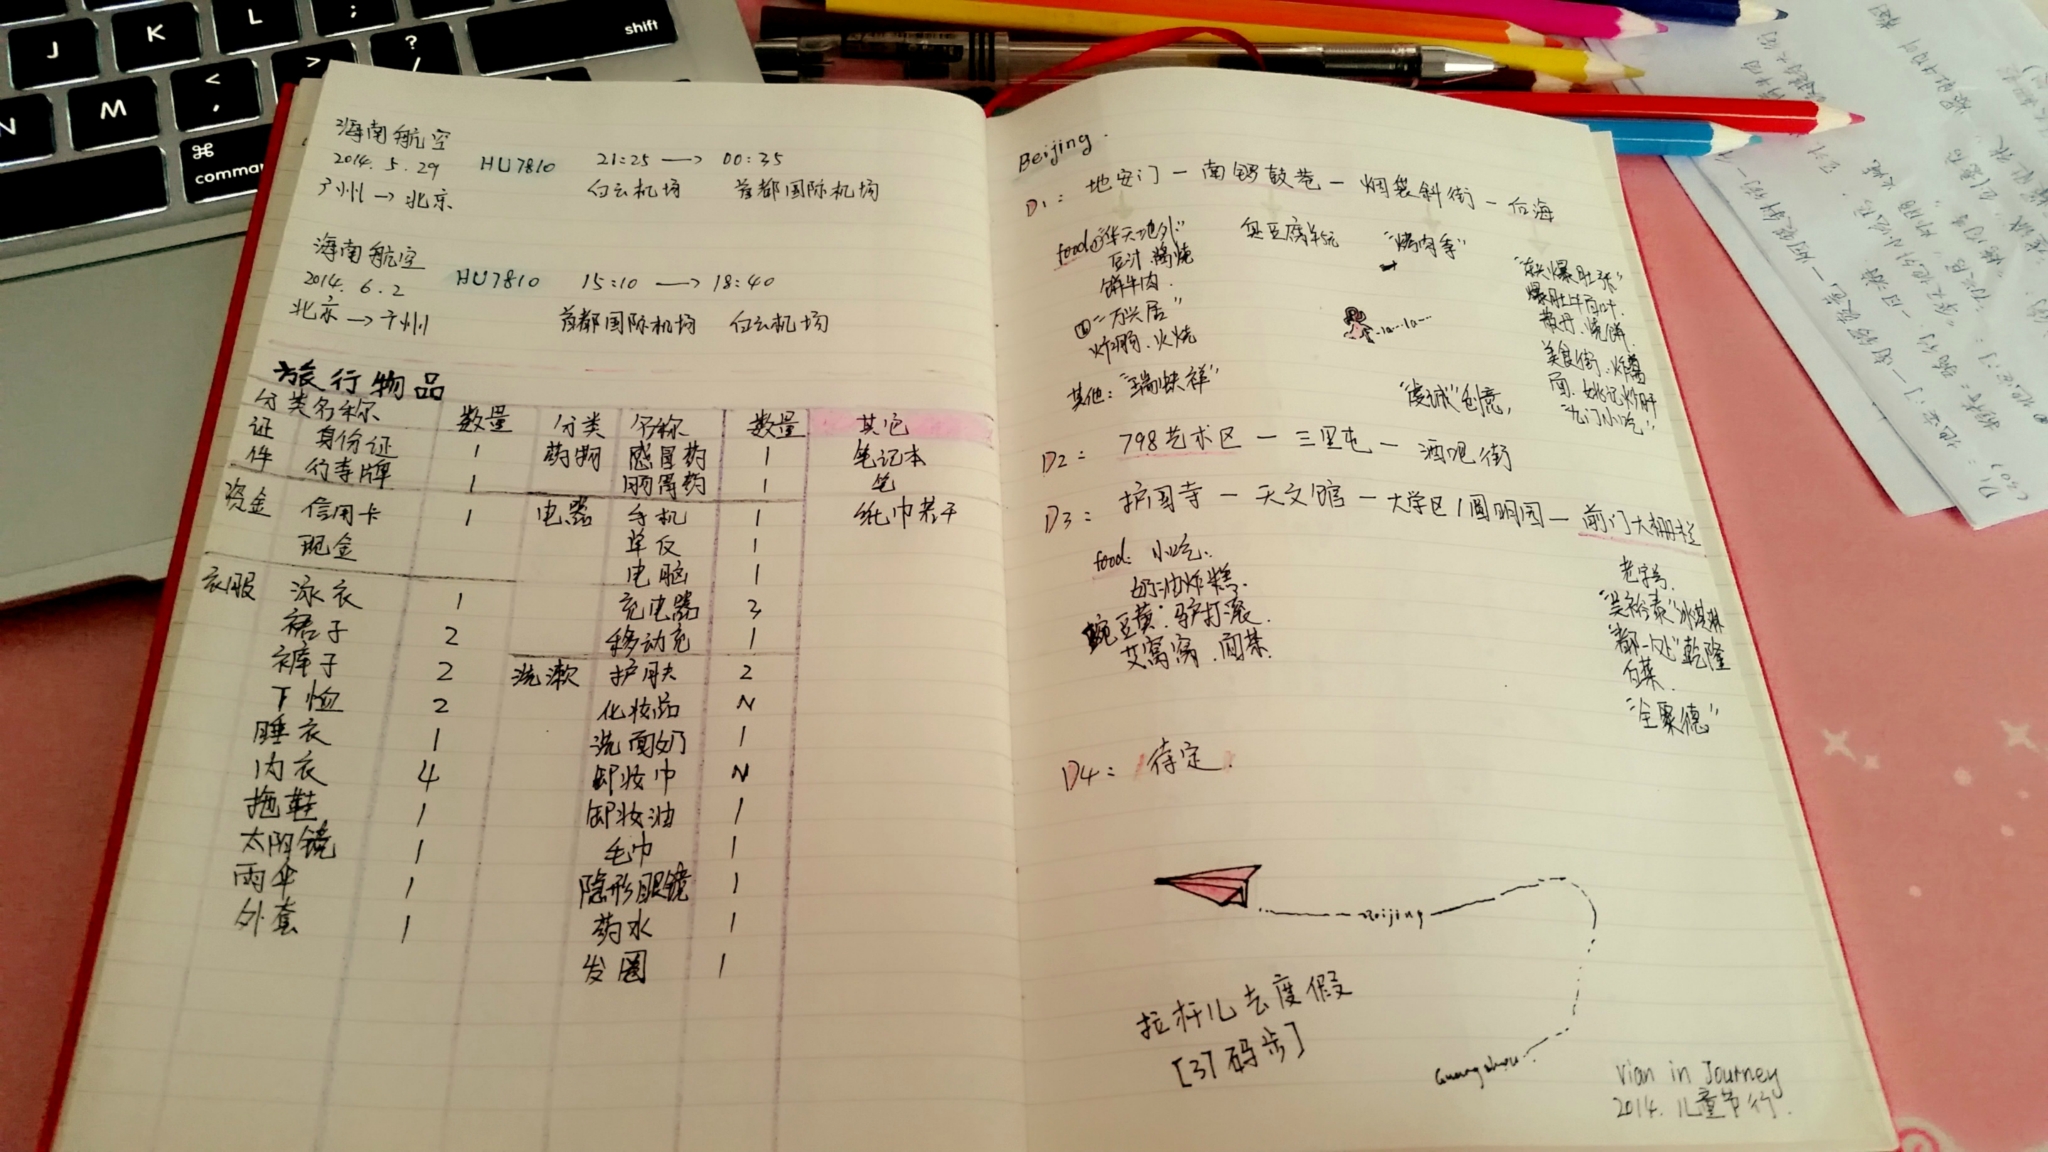 J
K
L
;
shift
N
M
<
,
>
?
/
⌘
command
海南航空
2014.5.29 HU7810 21:25 → 00:35
广州→北京 白云机场 首都国际机场
海南航空
2014.6.2 HU7810 15:10 → 18:40
北京→广州 首都国际机场 白云机场
旅行物品
分类 名称 数量 分类 名称 数量 其它
证件 身份证 1 药物 感冒药 1 笔记本
行李牌 1 1 笔
资金 信用卡 1 电器 手机 1 纸巾若干
现金 单反 1
电脑 1
衣服 泳衣 1 充电器 3
裙子 2 移动充 1
裤子 2 洗漱 护肤 2
T恤 2 化妆品 N
睡衣 1 洗面奶 1
内衣 4 卸妆巾 N
拖鞋 1 卸妆油 1
太阳镜 1 毛巾 1
雨伞 1 隐形眼镜 1
外套 1 药水 1
发圈 1
Beijing.
D1: 地安门 — 南锣鼓巷 — 烟袋斜街 — 后海
food ①"华天地外"
豆汁.酱烧
饼牛肉.
②"万兴居"
炸 火烧
臭豆腐
"烤肉季"
la...la...
"爆肚张"
爆肚牛百叶.
散丹.烧饼.
美食街.炸酱
面.姚记炒肝
"九门小吃"
其他:"瑞蚨祥" 创意,
D2: 798艺术区 — 三里屯 — 酒吧街
D3: 护国寺 — 天文馆 — 大学区/圆明园 — 前门大栅栏
food. 小吃.
奶油炸糕.
豌豆黄.驴打滚.
艾窝窝.面茶.
老字号
"吴裕泰"冰淇淋
"都一处"乾隆
白菜.
"全聚德"
D4: 待定.
Beijing
拉杆儿去度假
[37码步]
Guangzhou.
Vian in Journey
2014.儿童节行.